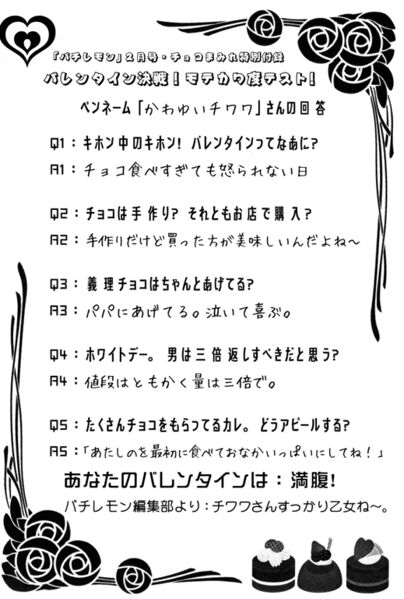 「バチレモン」2月号・チョコまみれ特別付録
バレンタイン決戦！モテカワ度テスト！
ペンネーム「かわゆいチワワ」さんの回答
Q1：キホン中のキホン！バレンタインってなあに？
A1：チョコ食べすぎても怒られない日
Q2：チョコは手作り？それともお店で購入？
A2：手作りだけど買った方が美味しいんだよね〜
Q3：義理チョコはちゃんとあげてる？
A3：パパにあげてる。泣いて喜ぶ。
Q4：ホワイトデー。男は三倍返しすべきだと思う？
A4：値段はともかく量は三倍で。
Q5：たくさんチョコをもらってるカレ。どうアピールする？
A5：「あたしのを最初に食べておなかいっぱいにしてね！」
あなたのバレンタインは：満腹！
バチレモン編集部より：チワワさんすっかり乙女ね〜。